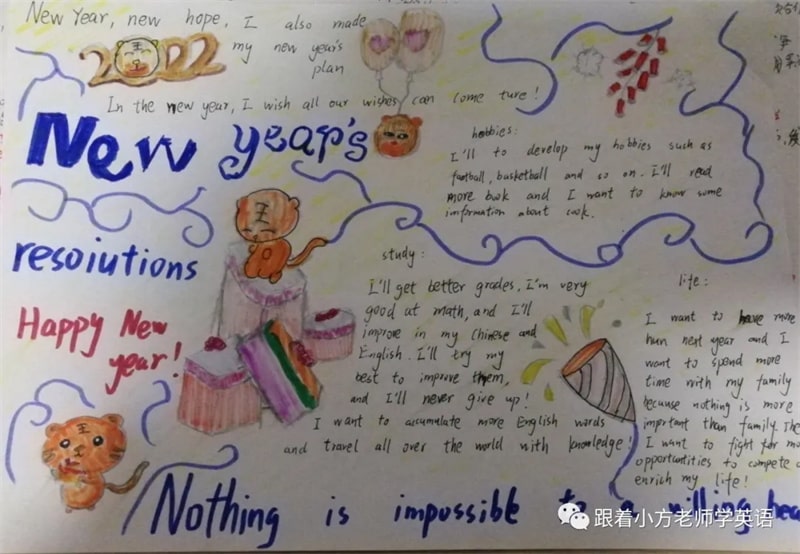 New Year, new hope, I also made
my new year's
plan
2022
In the new year, I wish all our wishes can come ture!
New year's
resoiutions
Happy New
year!
hobbies:
I'll to develop my hobbies such as
football, basketball and so on. I'll read
more book and I want to know some
imformation about cook.
study:
I'll get better grades, I'm very
good at math, and I'll
improve in my Chinese and
English. I'll try my
best to improve them,
and I'll never give up!
I want to accumulate more English words
and travel all over the world with knowledge!
life:
I want to have more
hun next year and I
want to spend more
time with my family
because nothing is more
important than family. The
I want to fight for mo
opportunities to compete a
enrich my life!
Nothing is impossible to a willing hea
跟着小方老师学英语